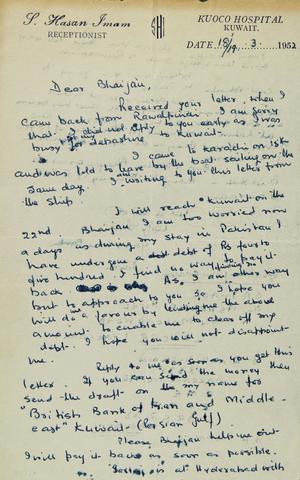 S. Hasan Imam
RECEPTIONIST
SHI
KUOCO HOSPITAL
KUWAIT.
DATE 18/19. 3. 1952
Dear Bhaijan,
Received your letter, when I
came back from Rawalpindi. I am sorry
that I did not reply to you early as I was
busy for my departure to Kuwait.
I came to Karachi on 15th
and was told to leave by the boat sailing on the
same day. I am writing to you this letter from
the ship.
I will reach Kuwait on the
22nd. Bhaijan I am too worried now
a days as during my stay in Pakistan I
have undergone a debt of Rs four to
five hundred. I find no way to pay it
back. As I am finding no other way
but to approach to you so I hope you
will do a favour by lending me the above
amount. To enable me to clear off my
debt. I hope you will not disappoint
me.
Reply to me as soon as you get this
letter. If you can send the money then
send the draft on the my name for
"British Bank of Iran and Middle-
east" Kuwait (Persian Gulf)
Please Bhaijan help me out
I will pay it back as soon as possible.
is at Hyderabad with